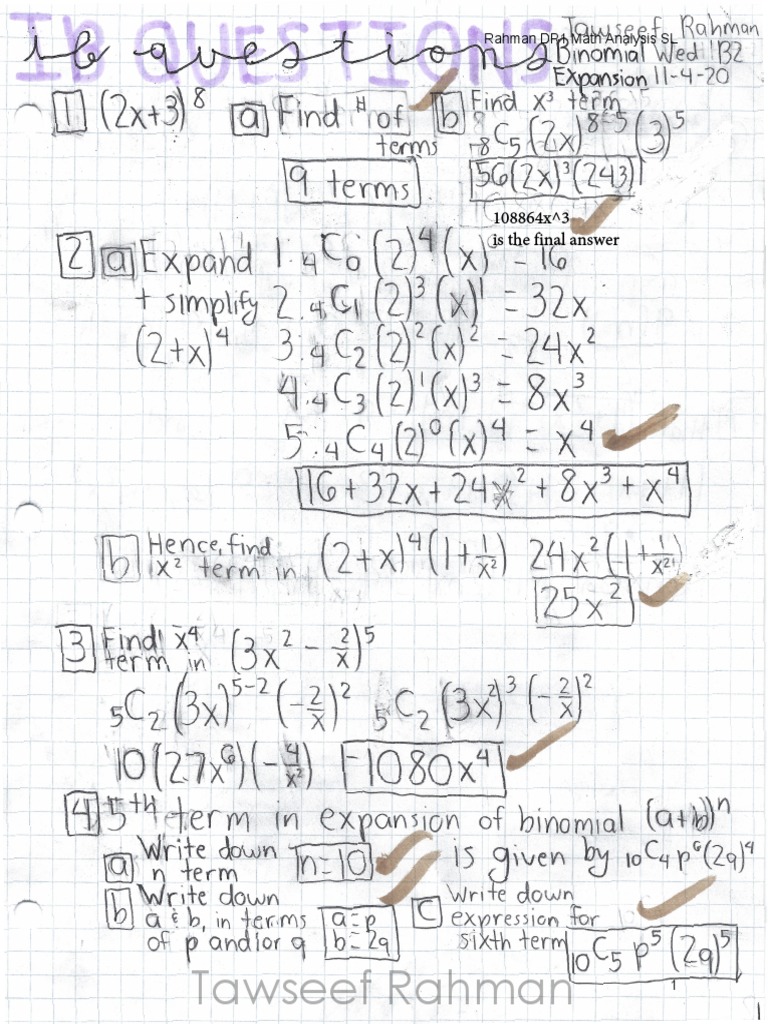 IB QUESTIONS
ib questions
Tawseef Rahman
Rahman DP1 Math Analysis SL
Binomial Wed 1B2
Expansion 11-4-20
1 (2x+3)^8 a Find # of terms b Find x^3 term
8C5 (2x)^8-5 (3)^5
9 terms 56(2x)^3(243)
108864x^3
is the final answer
2 a Expand 1: 4C0 (2)^4 (x)^0 = 16
+ simplify 2: 4C1 (2)^3 (x)^1 = 32x
(2+x)^4 3: 4C2 (2)^2 (x)^2 = 24x^2
4: 4C3 (2)^1 (x)^3 = 8x^3
5: 4C4 (2)^0 (x)^4 = x^4
16 + 32x + 24x^2 + 8x^3 + x^4
b Hence, find x^2 term in (2+x)^4 (1+1/x^2) 24x^2 (1+1/x^2)
25x^2
3 Find x^4 term in (3x^2 - 2/x)^5
5C2 (3x)^5-2 (-2/x)^2 5C2 (3x^2)^3 (-2/x)^2
10(27x^6)(-4/x^2) -1080x^4
4 5th term in expansion of binomial (a+b)^n
is given by 10C4 p^6 (2q)^4
a Write down n term n=10
b Write down a & b, in terms of p and/or q a=p b=2q
c Write down expression for sixth term 10C5 p^5 (2q)^5
Tawseef Rahman
1
1